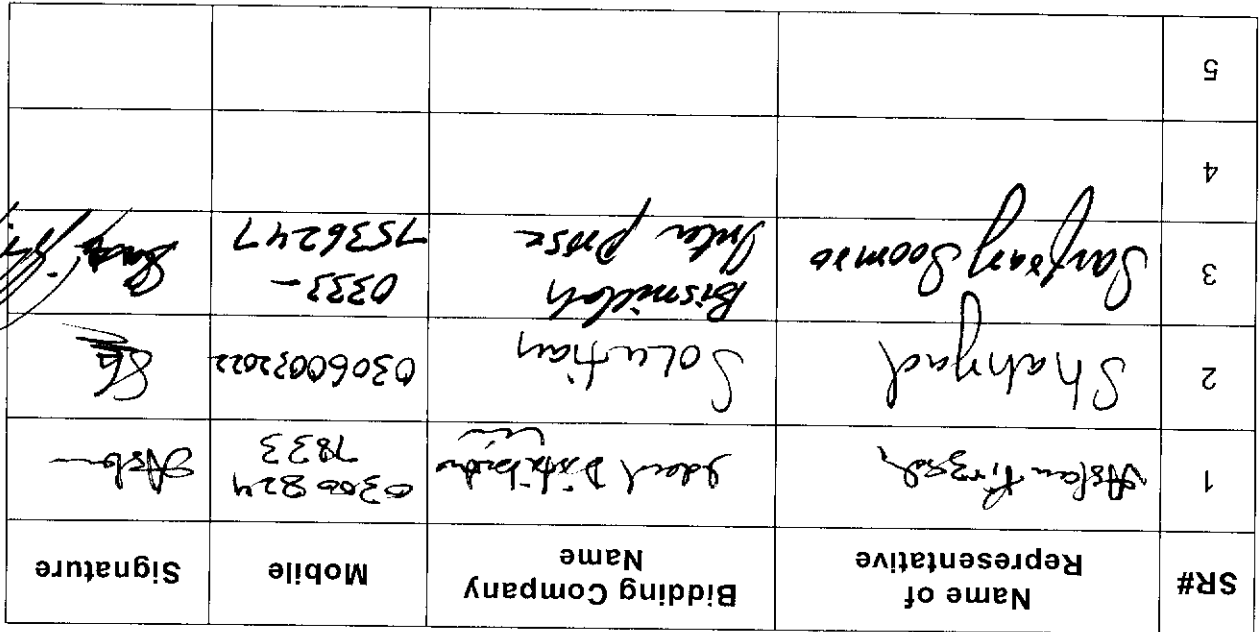 SR# Name of Representative Bidding Company Name Mobile Signature
1 Ideal Distributor 0300824
7833
2 Shahzad Solution 03060032022
3 Sarfraz Soomro Bismillah 0333-
Inter prise 7536247
4
5